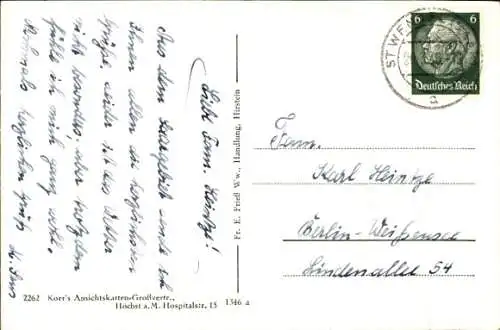 Liebe Fam. Heintze!
Aus dem Saargebiet sende ich
Ihnen allen die herzlichsten
Grüße. Leider ist das Wetter
nicht besonders, aber trotzdem
fühle ich mich ganz wohl.
Nochmals herzlichen Gruß
Fr. E. Friedl Ww., Handlung, Hirstein
2262 Korr's Ansichtskarten-Großvertr.,
Höchst a. M. Hospitalstr. 15 1346 a
ST WEN
a
6 6
Deutsches Reich
Fam.
Karl Heintze
Berlin-Weißensee
Lindenallee 54